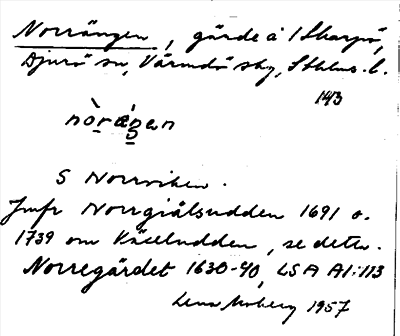 Norrängen, gärde å 1 Skarpö,
Djurö sn, Värmdö skg, Sthlms l.
143
nòræ̀ŋen
S Norrviken.
Jmfr Norrgiälsudden 1691 o.
1739 om Käceludden, se detta.
Norregärdet 1630-40, LSA A1:113
Lena Moberg 1957